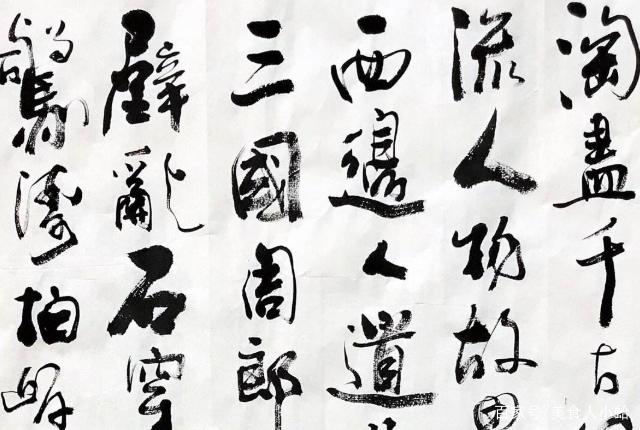 淘盡千古
流人物故
西邊人道
三國周郎
壁亂石穿
驚濤拍岸
百家号/美食人小